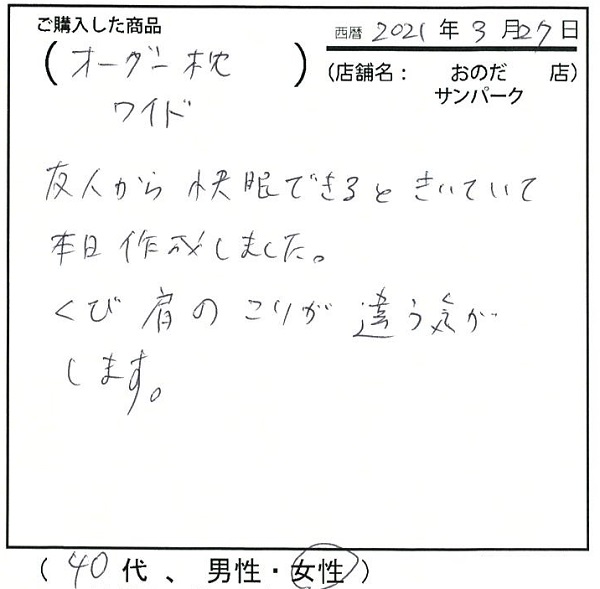 ご購入した商品
西暦 2021年3月27日
(オーダー枕
ワイド)
(店舗名: おのだサンパーク 店)
友人から快眠できるときいていて
本日作成しました。
くび肩のこりが違う気が
します。
(40代、男性・女性)